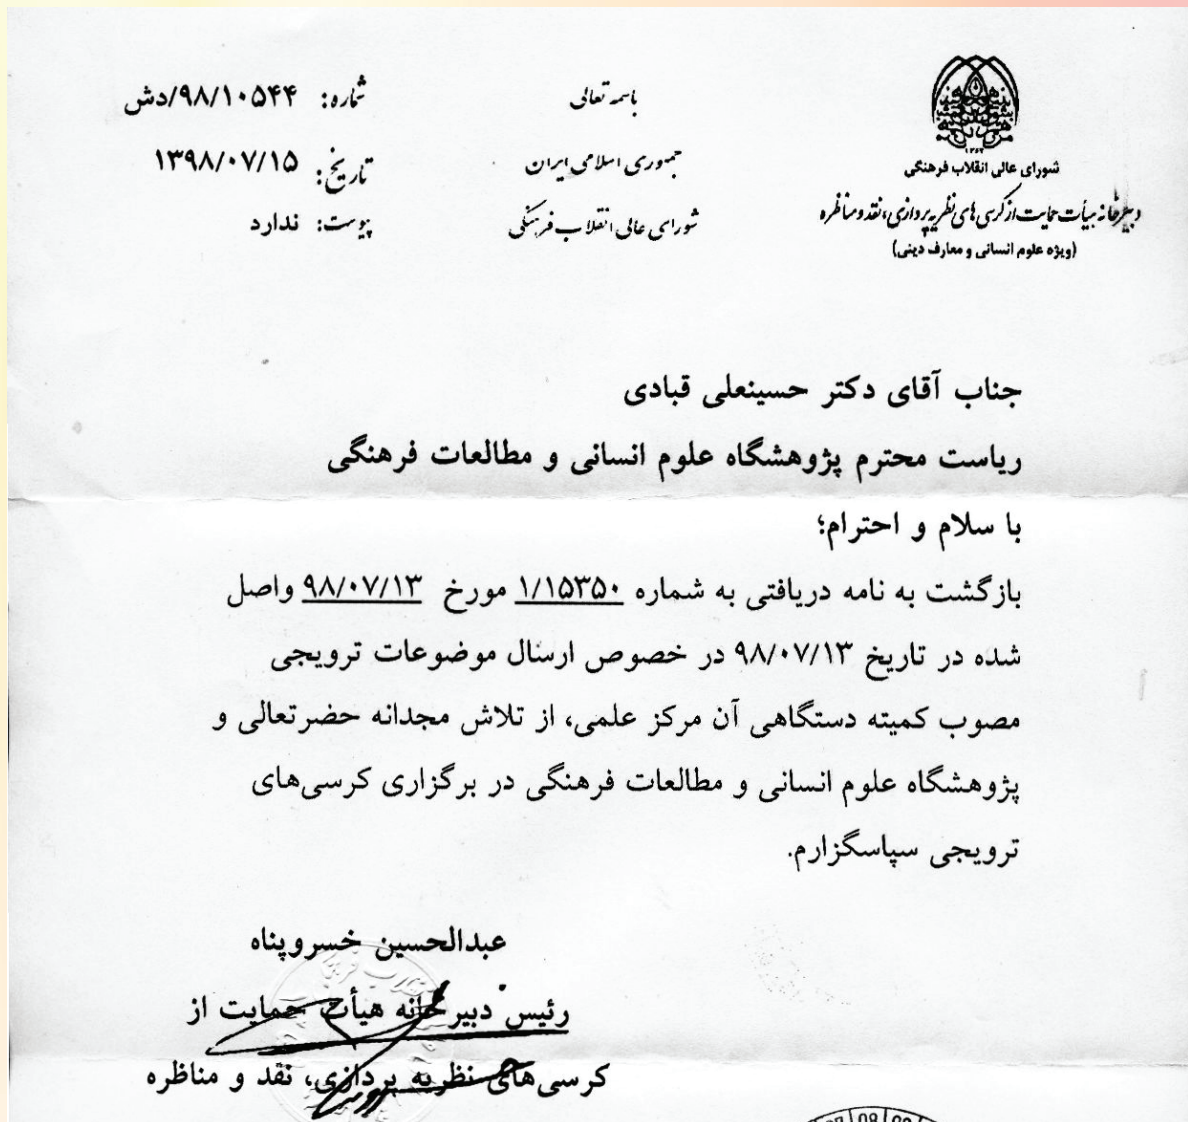 ۱۳۶۳
شورای عالی انقلاب فرهنگی
دبیرخانه هیأت حمایت از کرسی های نظریه پردازی، نقد و مناظره
(ویژه علوم انسانی و معارف دینی)
باسمه تعالی
جمهوری اسلامی ایران
شورای عالی انقلاب فرهنگی
شماره: ۹۸/۱۰۵۴۴/دش
تاریخ: ۱۳۹۸/۰۷/۱۵
پیوست: ندارد
جناب آقای دکتر حسینعلی قبادی
ریاست محترم پژوهشگاه علوم انسانی و مطالعات فرهنگی
با سلام و احترام؛
بازگشت به نامه دریافتی به شماره ۱/۱۵۳۵۰ مورخ ۹۸/۰۷/۱۳ واصل
شده در تاریخ ۹۸/۰۷/۱۳ در خصوص ارسال موضوعات ترویجی
مصوب کمیته دستگاهی آن مرکز علمی، از تلاش مجدانه حضرتعالی و
پژوهشگاه علوم انسانی و مطالعات فرهنگی در برگزاری کرسی‌های
ترویجی سپاسگزارم.
عبدالحسین خسروپناه
رئیس دبیرخانه هیأت حمایت از
کرسی‌های نظریه پردازی، نقد و مناظره